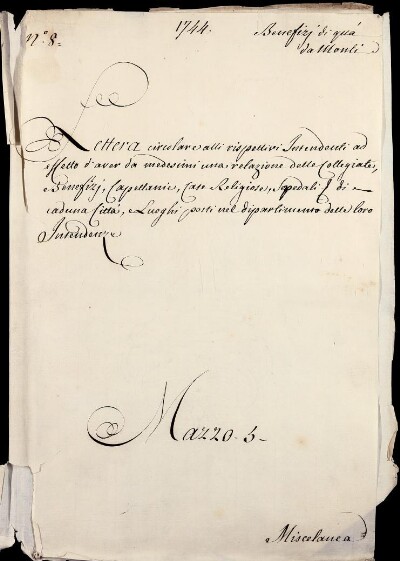 n.º 8=
1744.
Benefizj di quà
da Monti
Lettera circolare alli rispettivi Intendenti ad
effetto d'aver da medesimi una relazione delle Collegiate,
Benefizj, Capellanie, Case Religiose, Ospedali di
caduna Città, e Luoghi posti nel dipartimento delle loro
Intendenze
Mazzo. 5-
Miscelanea